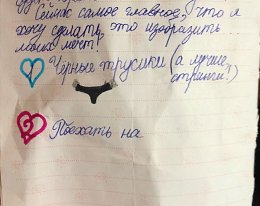 Сейчас самое главное, что я
хочу сделать, это изобразить ...
моих мечт!
Чёрные трусики (а лучше
стринги!)
Поехать на